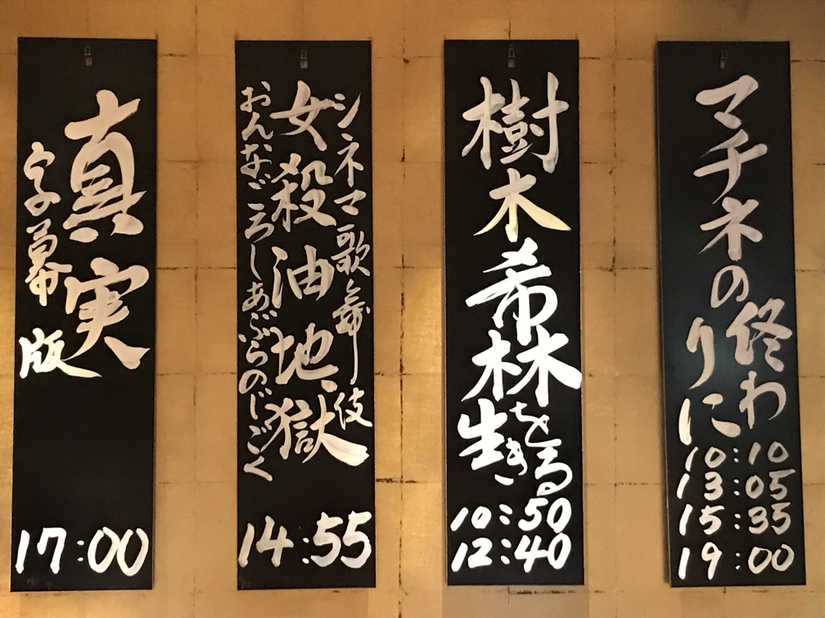 マチネの
終わ
りに
10:10
13:05
15:35
19:00
樹木希林
を
生きる
10:50
12:40
シネマ歌舞伎
女殺油地獄
おんなごろしあぶらのじごく
14:55
真実
字幕版
17:00